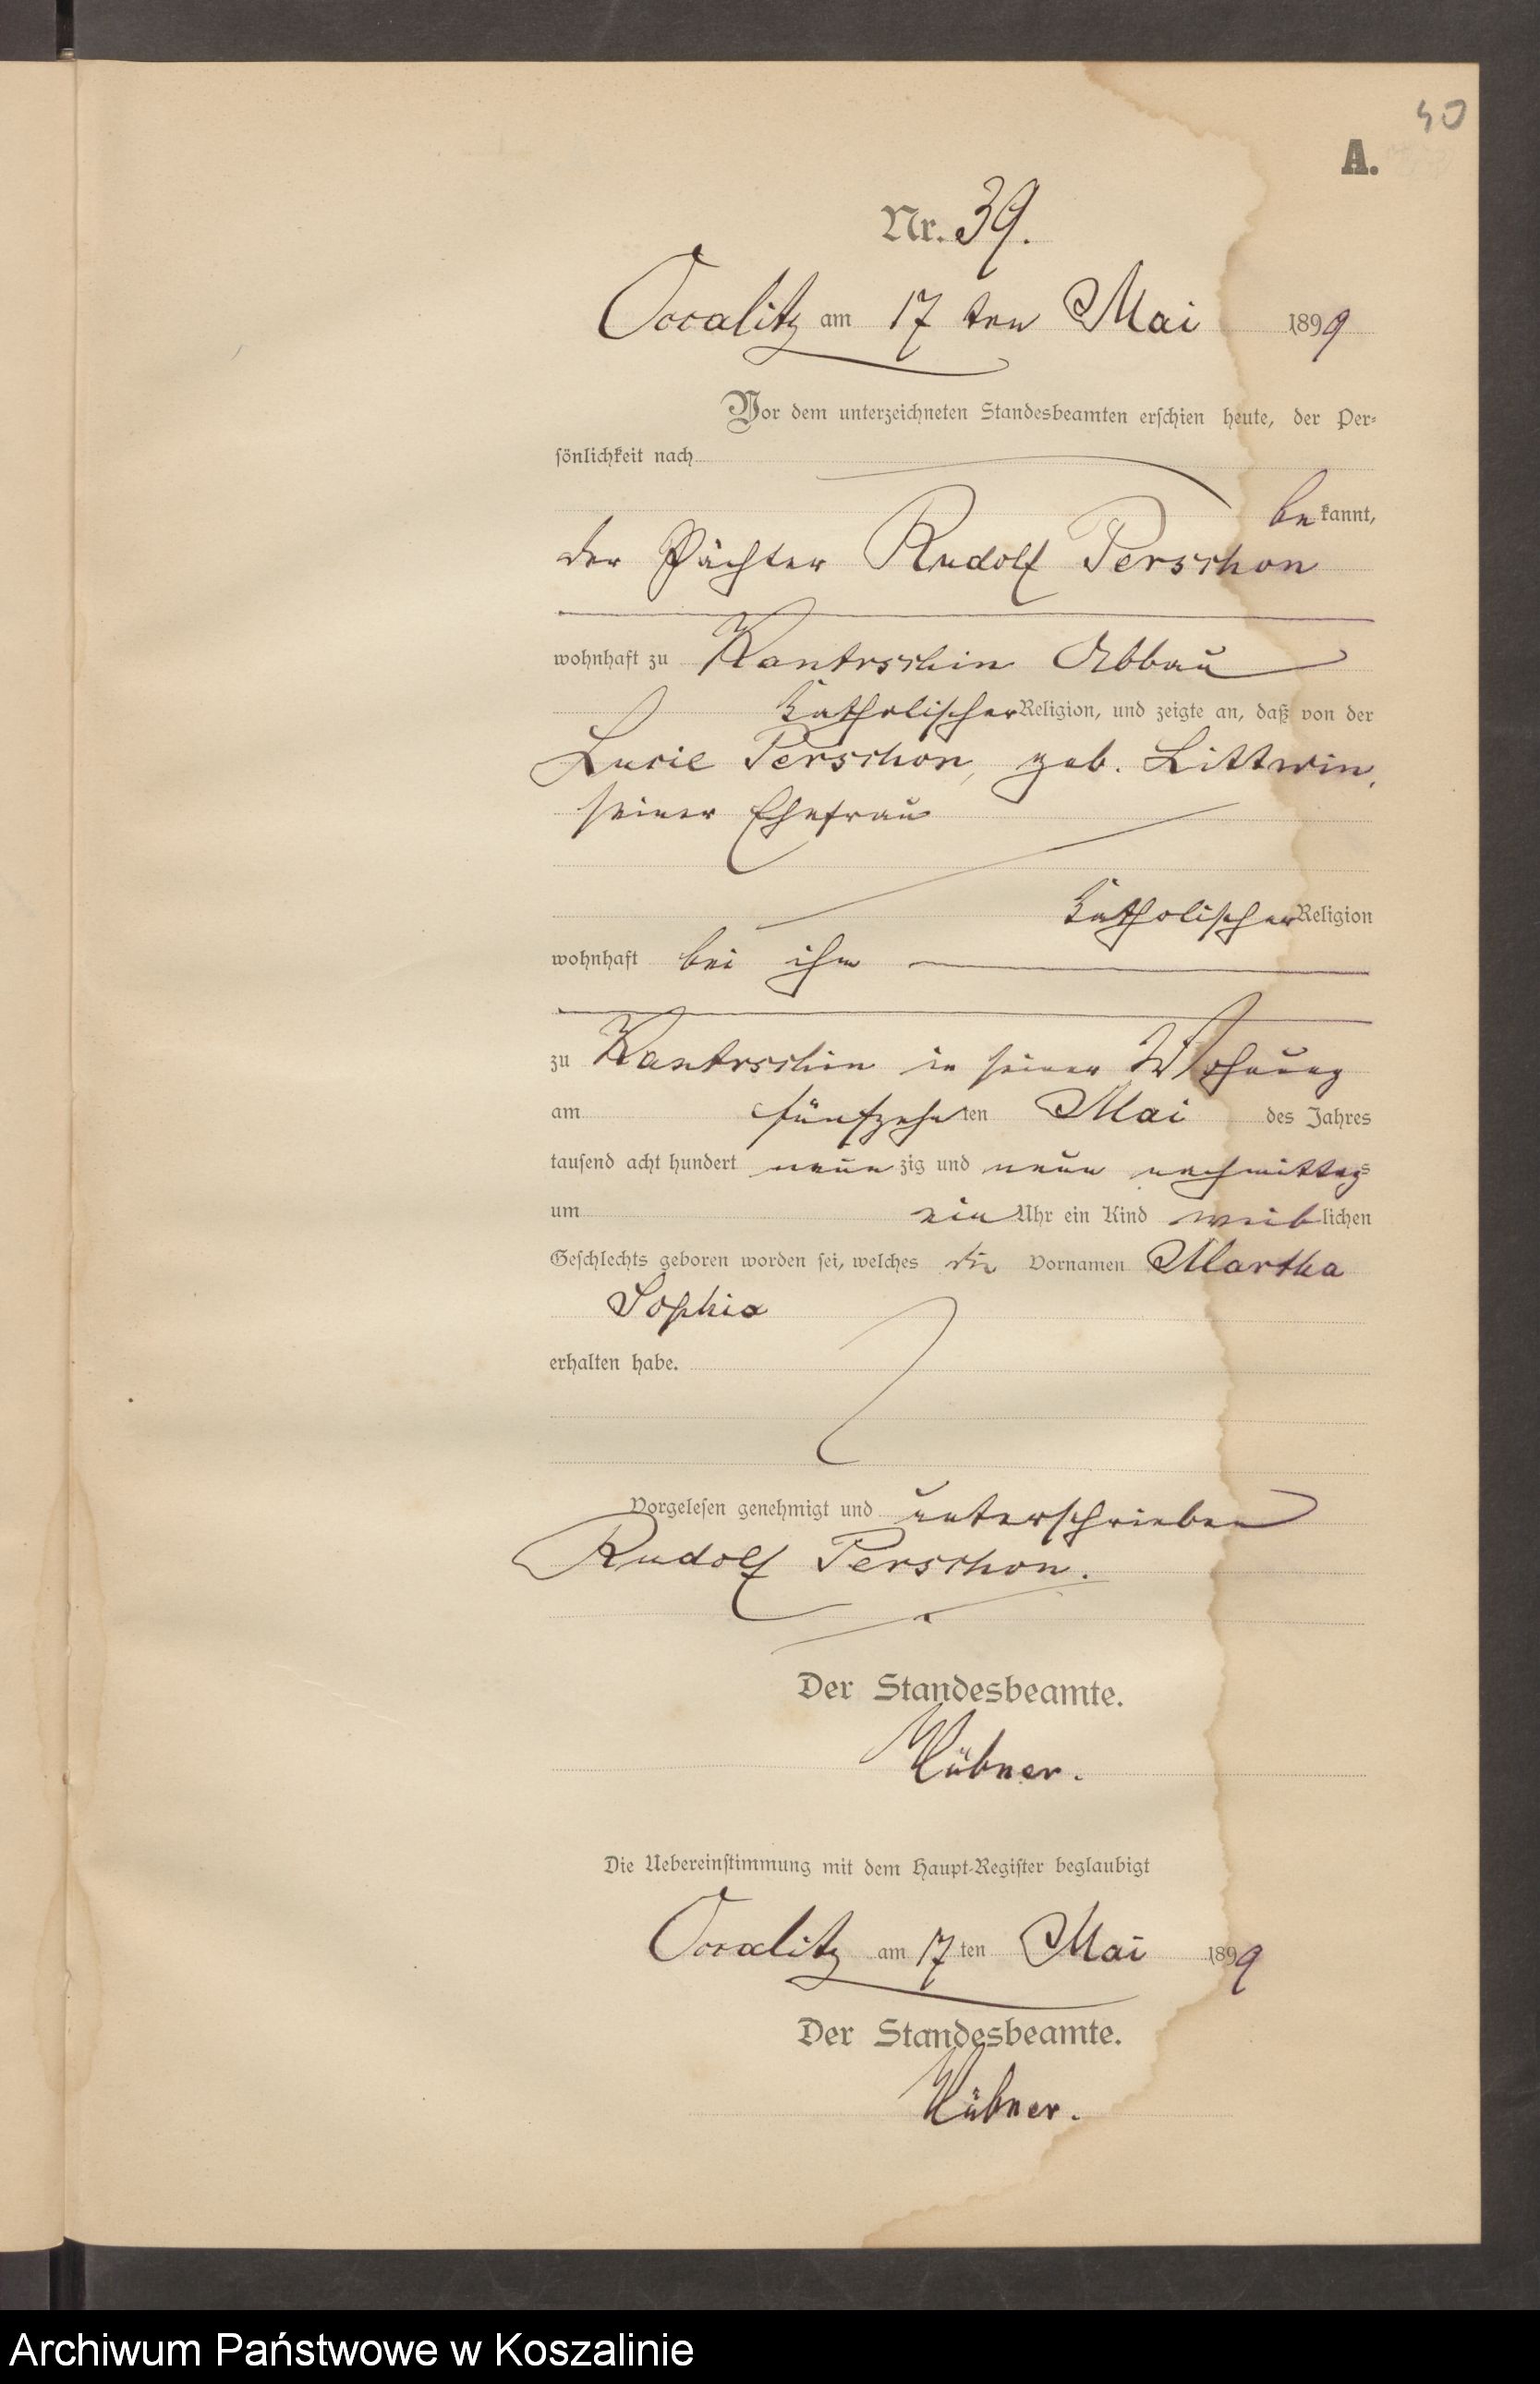 40
A.
Nr. 39.
Occalitz am 17 ten Mai 1899
Vor dem unterzeichneten Standesbeamten erschien heute, der Per-
sönlichkeit nach
be kannt,
der Pächter Rudolf Perschon
wohnhaft zu Kantrschin Abbau
katholischer Religion, und zeigte an, daß von der
Lucie Perschon, geb. Littwin,
seiner Ehefrau
katholischer Religion
wohnhaft bei ihm
zu Kantrschin in seiner Wohnung
am fünfzehnten Mai des Jahres
tausend acht hundert neunzig und neun nachmittags
um ein Uhr ein Kind weiblichen
Geschlechts geboren worden sei, welches die Vornamen Martha
Sophia
erhalten habe.
Vorgelesen genehmigt und unterschrieben
Rudolf Perschon.
Der Standesbeamte.
Hübner.
Die Uebereinstimmung mit dem Haupt-Register beglaubigt
Occalitz am 17 ten Mai 1899
Der Standesbeamte.
Hübner.
Archiwum Państwowe w Koszalinie